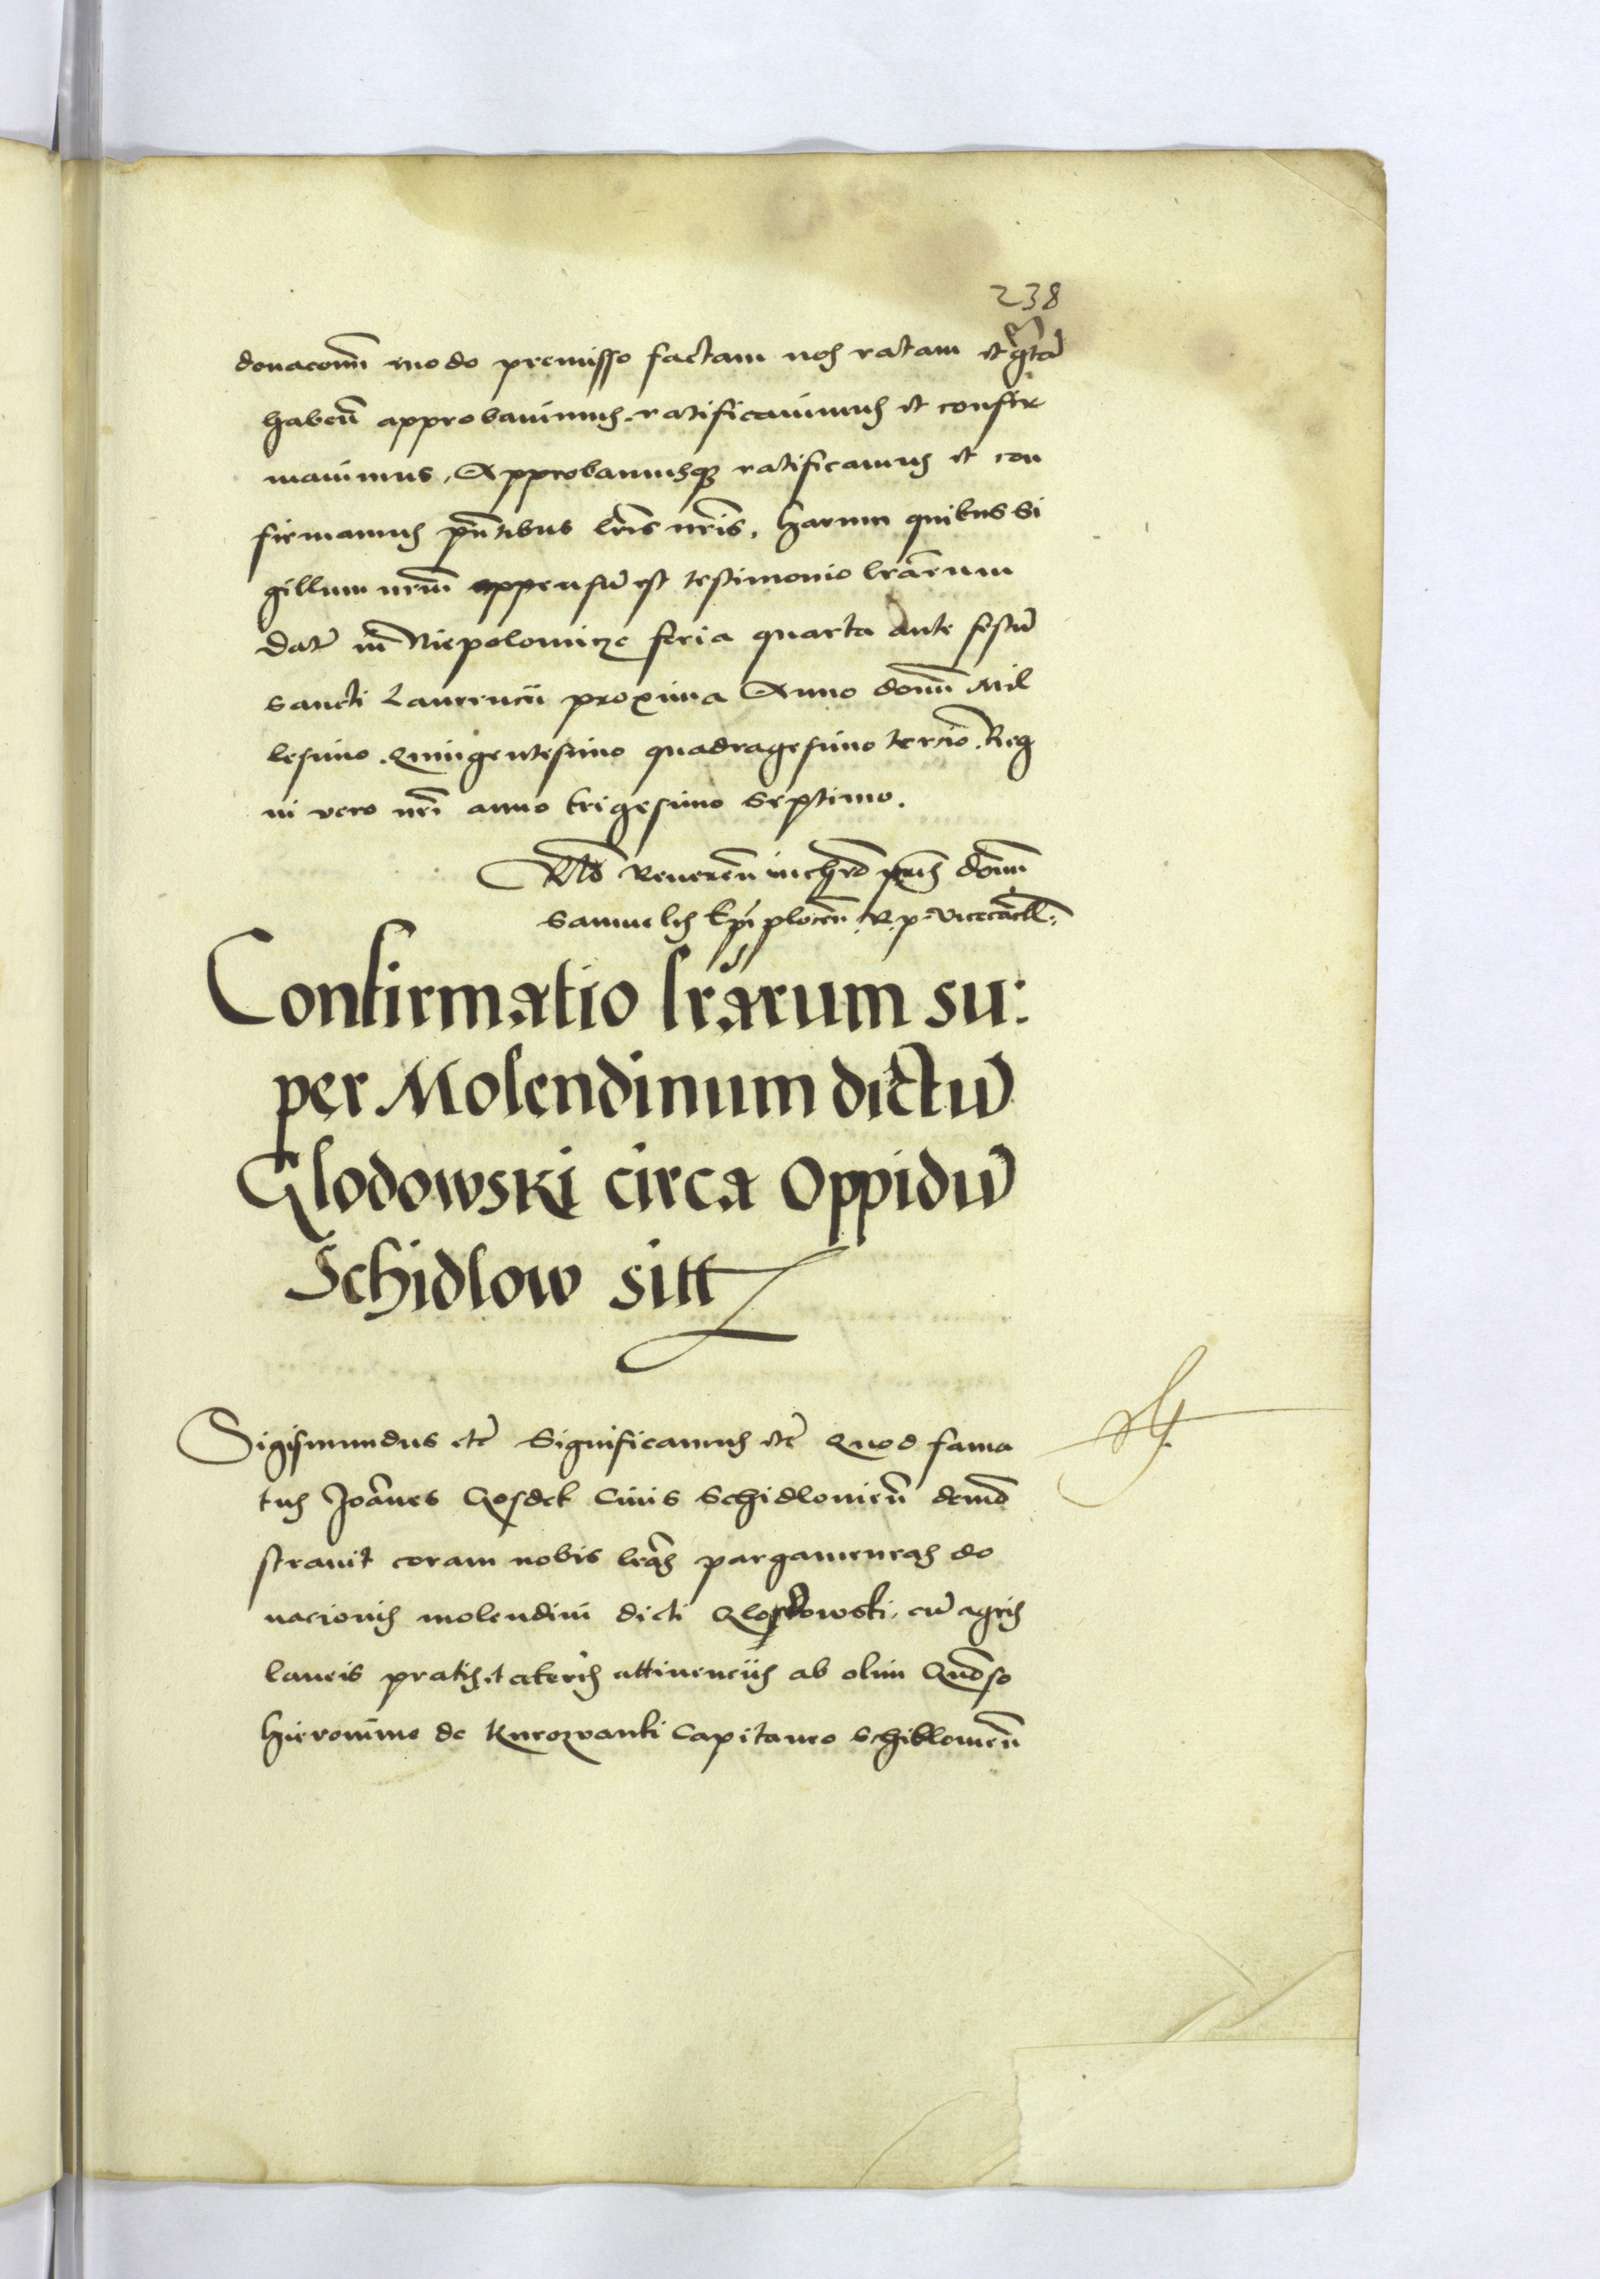 238
donaconm̃ modo premisso factam nos ratam et gr̃ta
habeñ approbavimus ratificavimus et confir
mavimus, Approbamusq̃ ratificamus et con
firmamus pñtibus lr̃is nr̃is, harum quibus si
gillum nr̃m appensũ est testimonio lrãrum
Dat̃ in Niepolomicze feria quarta ante festũ
sancti Laurencii proxima Anno domĩ Mil
lesimo Quingentesimo quadragesimo tercio. Reg
ni vero nr̃i anno trigesimo septimo.
Rl̃o Reveren̄ in chr̃o pr̃is domĩ
Samuelis Ep̃i plocen̄ R. p. Vicecãcell:
Confirmatio lr̃arum su:
per Molendinum dictũ
Glodowski circa Oppidũ
Schidlow sitt
Sigismundus etc̃ Significamus etc̃ Quod fama
tus Joãnes Gosdek Civis Schidlovieñ demõ
stravit coram nobis lrãs pargameneas do
nacionis molendini dicti Glodowski, cũ agris
laneis pratis et ceteris attinenciis ab olim Gñoso
Hieronimo de Kurozvanki Capitaneo Schidlovieñ